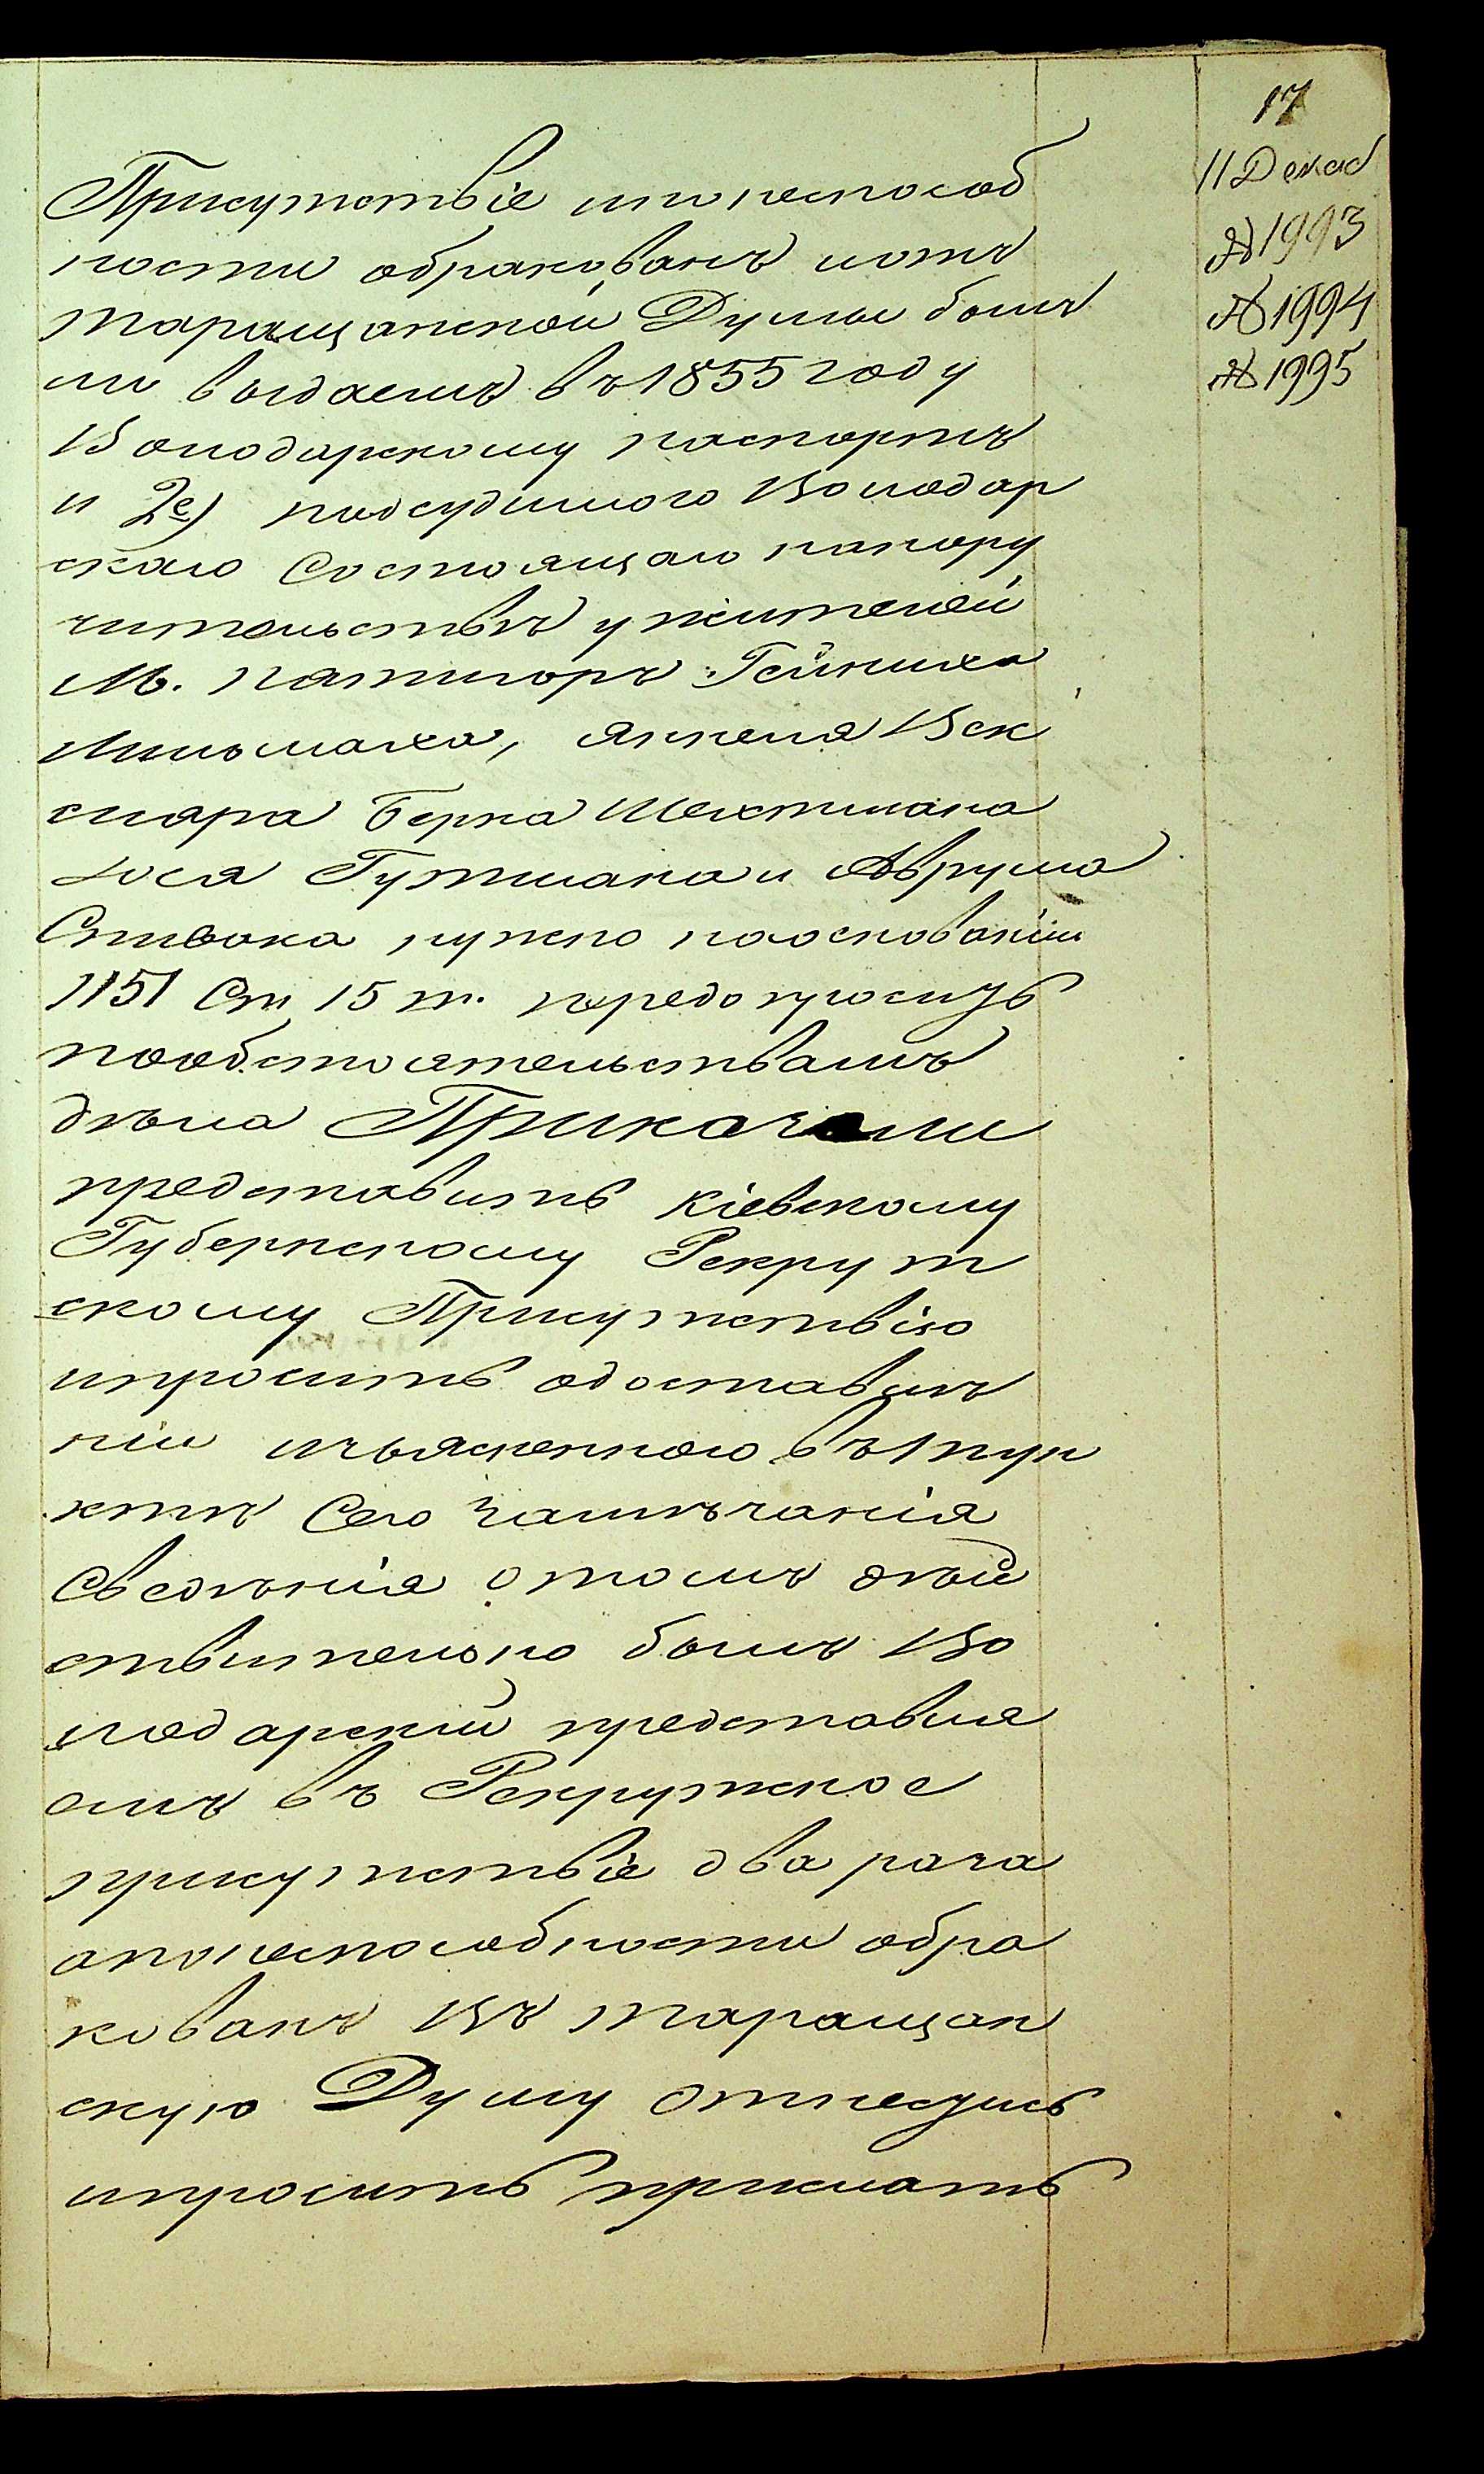 17
11 Декаб
№ 1993
№ 1994
№ 1995
Присутствіе ипонеспособ
ности обракованъ иотъ
таращанской Думы былъ
ли выдаемъ въ 1855 году
Володарскому паспортъ
и 2е) подсудимого Володар
скаго состоящаго напору
чительствѣ ужителей
М. Пятигоръ Гейниха
Мильмана, Янкеля Век
сляра Берка Шехтмана
Іося Гутмана и Аврума
Спивака нужно наоснованіи
1151 Ст. 15 т. передопросить
пообстоятельствамъ
дѣла Приказали
представить Кіевскому
Губернскому Рекрут
скому Присутствію
ипросить одоставле
ніи изъясненного въ 1 пун
ктѣ Сего замѣчанія
Свѣденія отомъ дѣй
ствительно былъ Во
лодарскій представля
емъ въ Рекрутское
присутствіе два раза
апонеспособности обра
кованъ Въ таращан
скую Думу отнестись
ипросить прислать